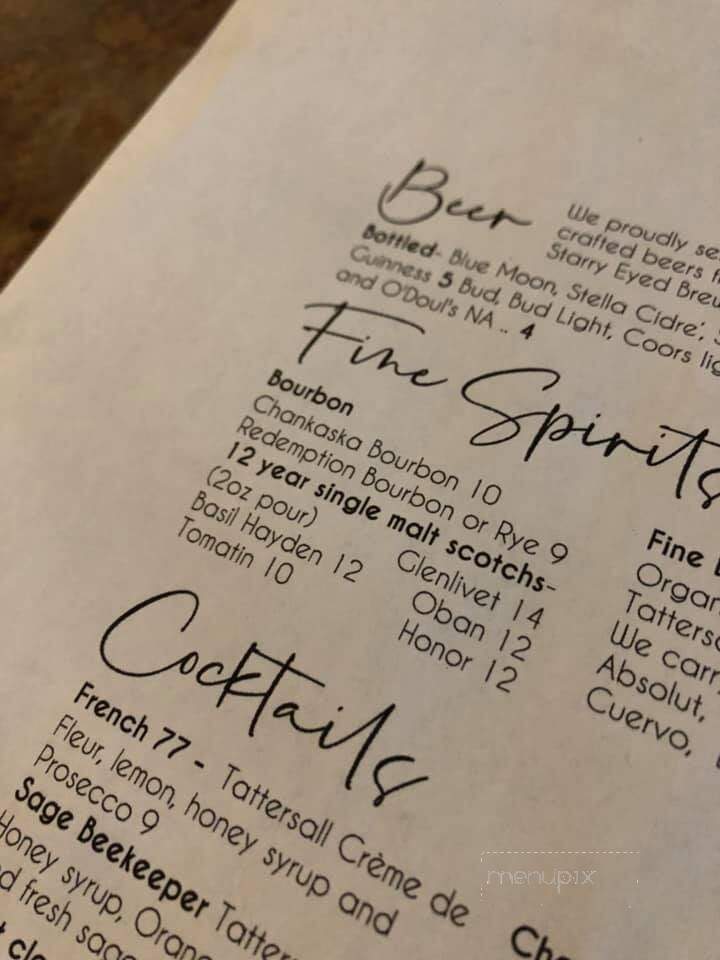 Beer
We proudly
crafted beers
Starry Eyed
Bottled- Blue Moon, Stella Cidre',
Guinness 5 Bud, Bud Light, Coors
and O'Doul's NA .. 4
Fine Spirits
Bourbon
Chankaska Bourbon 10
Redemption Bourbon or Rye 9
12 year single malt scotchs-
(2oz pour)
Basil Hayden 12
Tomatin 10
Glenlivet 14
Oban 12
Honor 12
Fine
We
Absolut,
Cuervo,
Cocktails
French 77 - Tattersall Crème de
Fleur, lemon, honey syrup and
Prosecco 9
Sage Beekeeper
Honey syrup,
fresh
menupix